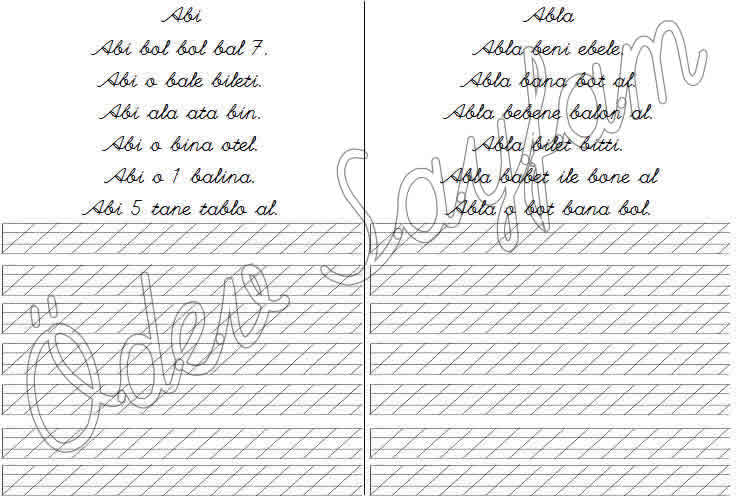 Abi
Abi bol bol bal 7.
Abi o bale bileti.
Abi ala ata bin.
Abi o bina otel.
Abi o 1 balina.
Abi 5 tane tablo al.
Abla
Abla beni ebele.
Abla bana bot al.
Abla bebene balon al.
Abla bilet bitti.
Abla babet ile bone al
Abla o bot bana bol.
Ödev Sayfam